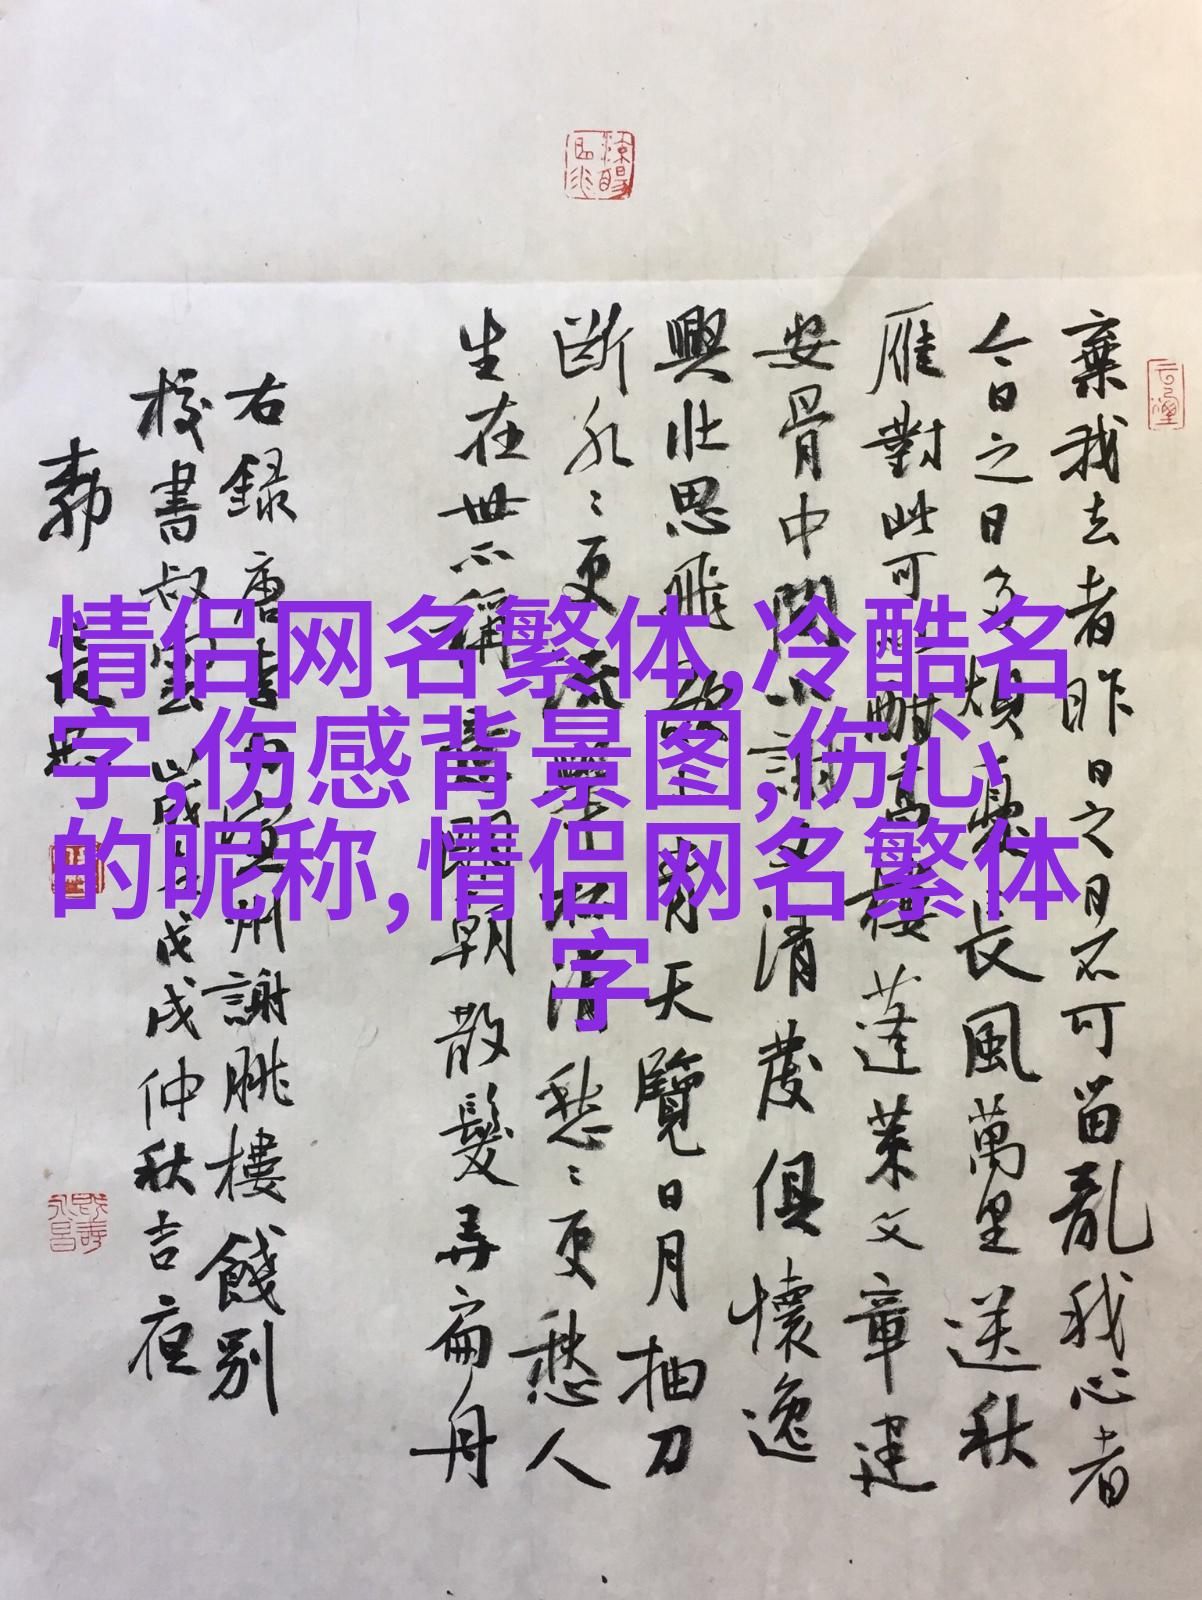 情侣网名繁体,冷酷名
字,伤感背景图,伤心
的昵称,情侣网名繁体
字
棄我去者昨日之日不可留亂我心者
今日之日多煩憂長風萬里送秋
雁對此可以酣高樓蓬萊文章建
安骨中間小謝又清發俱懷逸
興壯思飛欲上青天覽日月抽刀
斷水〻更流舉杯消愁〻更愁人
生在世不稱意明朝散髮弄扁舟
右録唐李白宣州謝朓樓餞別
校書叔雲 歲在戊戌仲秋吉夜